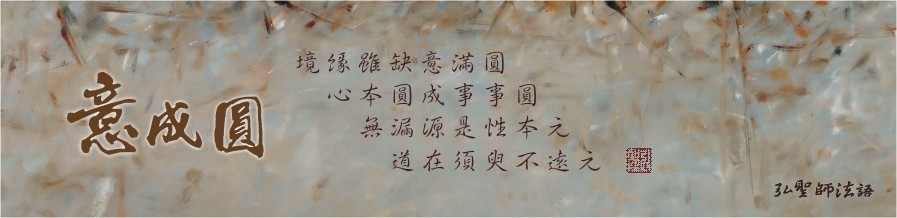 意成圓
境緣雖缺意滿圓
心本圓成事事圓
無漏源是性本元
道在須臾不遠元
弘聖師法語